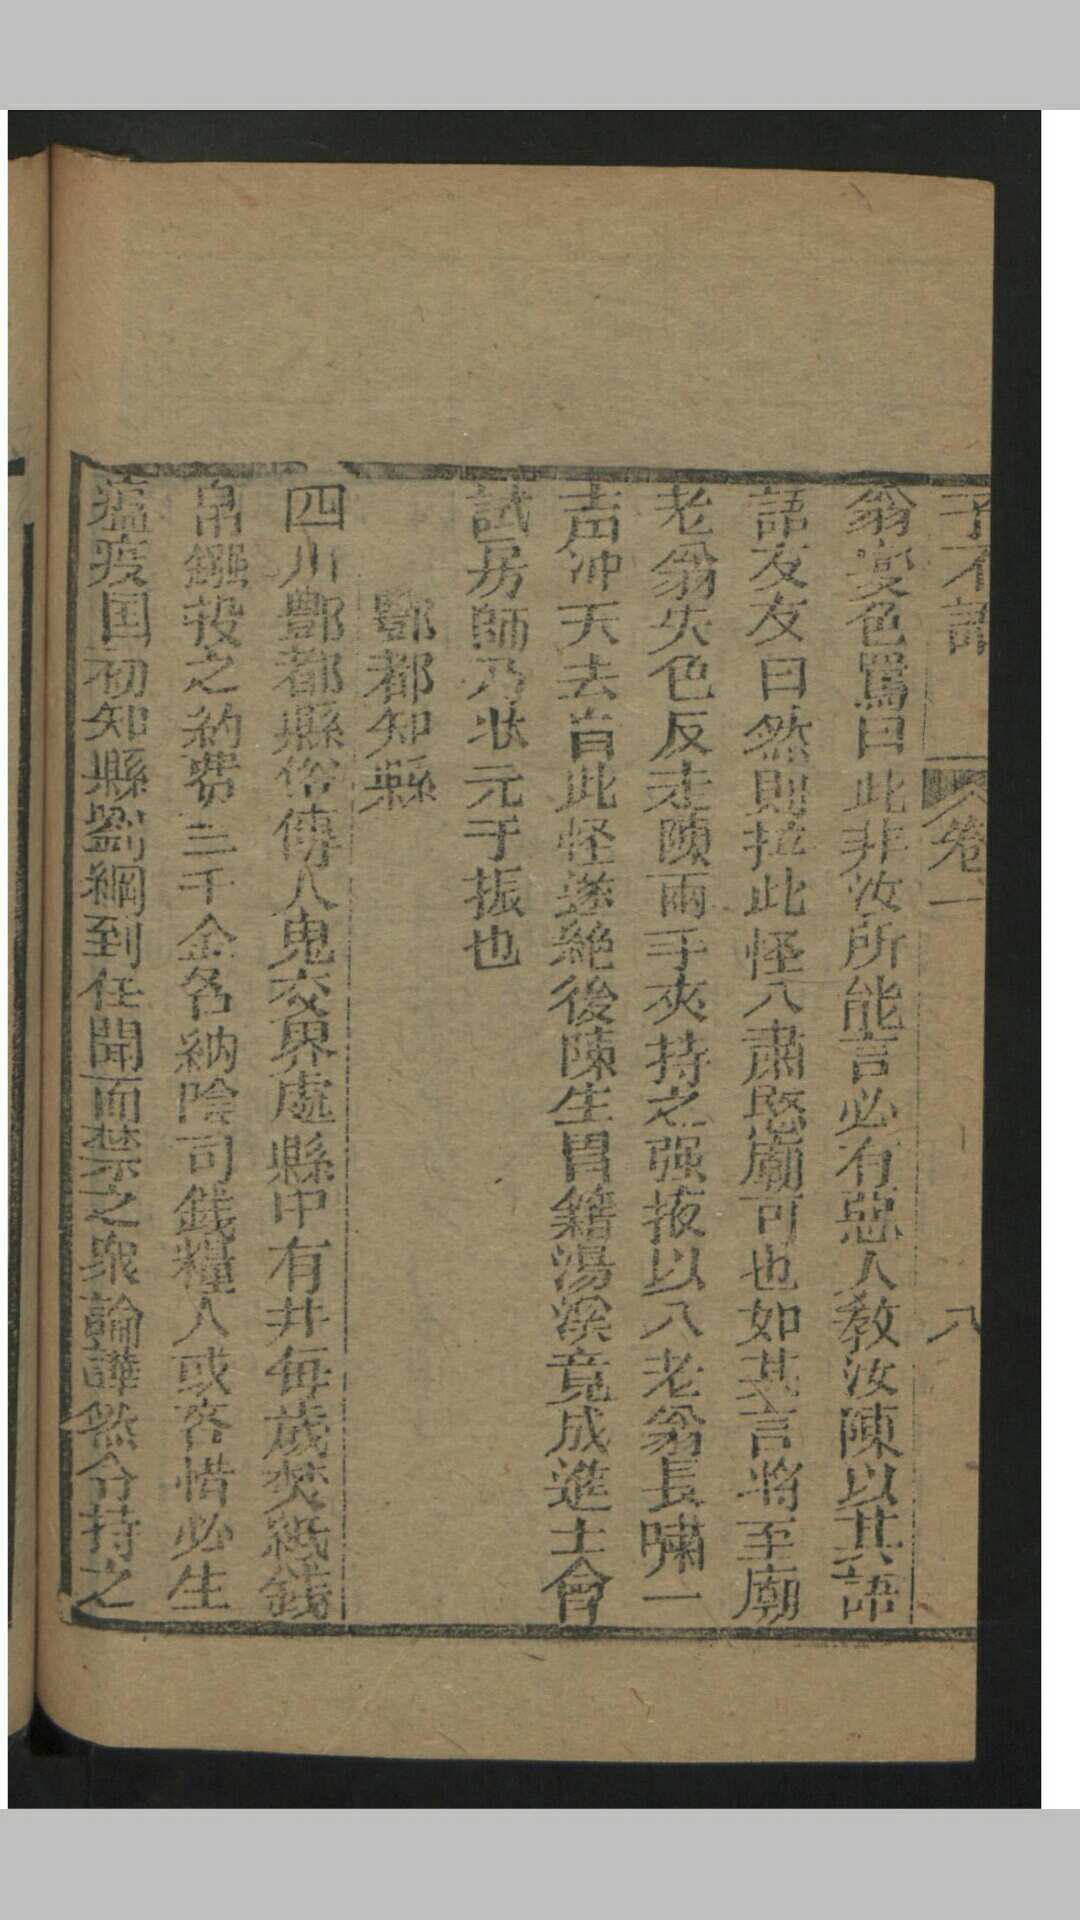 子不語 卷一 八
翁变色罵曰此非汝所能言必有惡人教汝陳以其語
語友友曰然則拉此怪入肅愍廟可也如其言将至廟
老翁失色反走陳兩手夾持之强掖以入老翁長嘯一
声冲天去自此怪遂絶後陳生冒籍湯溪竟成進士會
試房師乃状元于振也
酆都知縣
四川酆都縣俗傳人鬼交界處縣中有井每歲焚紙錢
帛鏹投之約费三千金名納陰司銭糧人或吝惜必生
瘟疫国初知縣劉綱到任聞而禁之衆論譁然令持之